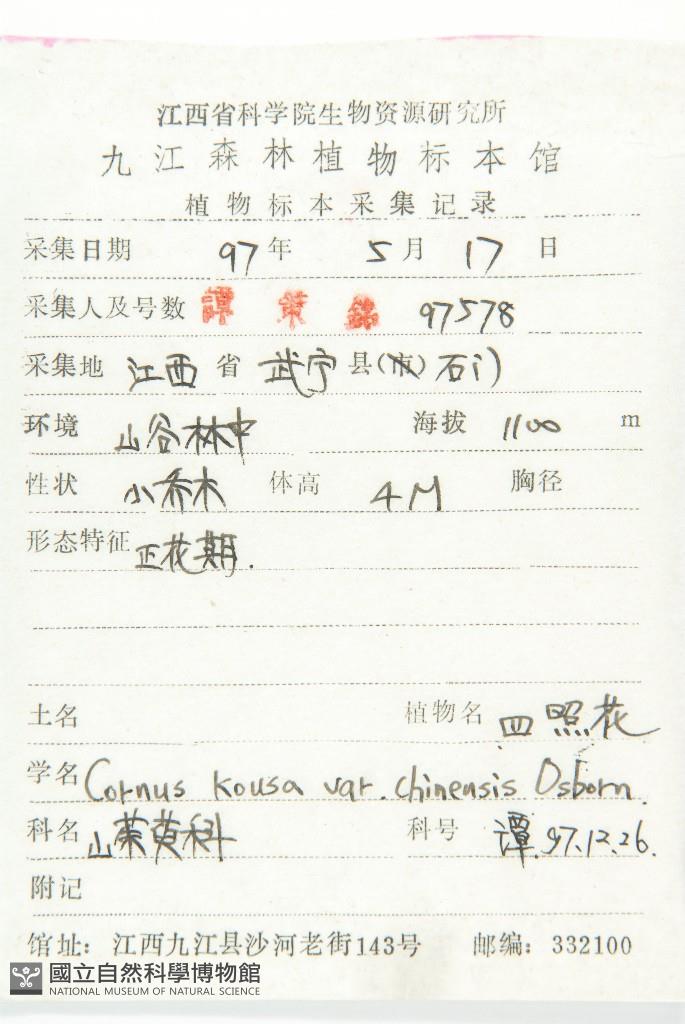 江西省科学院生物资源研究所
九江森林植物标本馆
植物标本采集记录
采集日期 97年 5月 17日
采集人及号数 譚策銘 97578
采集地 江西省 武宁县(市) 石门
环境 山谷林中 海拔 1100 m
性状 小乔木 体高 4M 胸径
形态特征 正花期.
土名 植物名 四照花
学名 Cornus kousa var. chinensis Osborn.
科名 山茱萸科 科号 谭.97.12.26.
附记
馆址: 江西九江县沙河老街143号 邮编: 332100
國立自然科學博物館
NATIONAL MUSEUM OF NATURAL SCIENCE